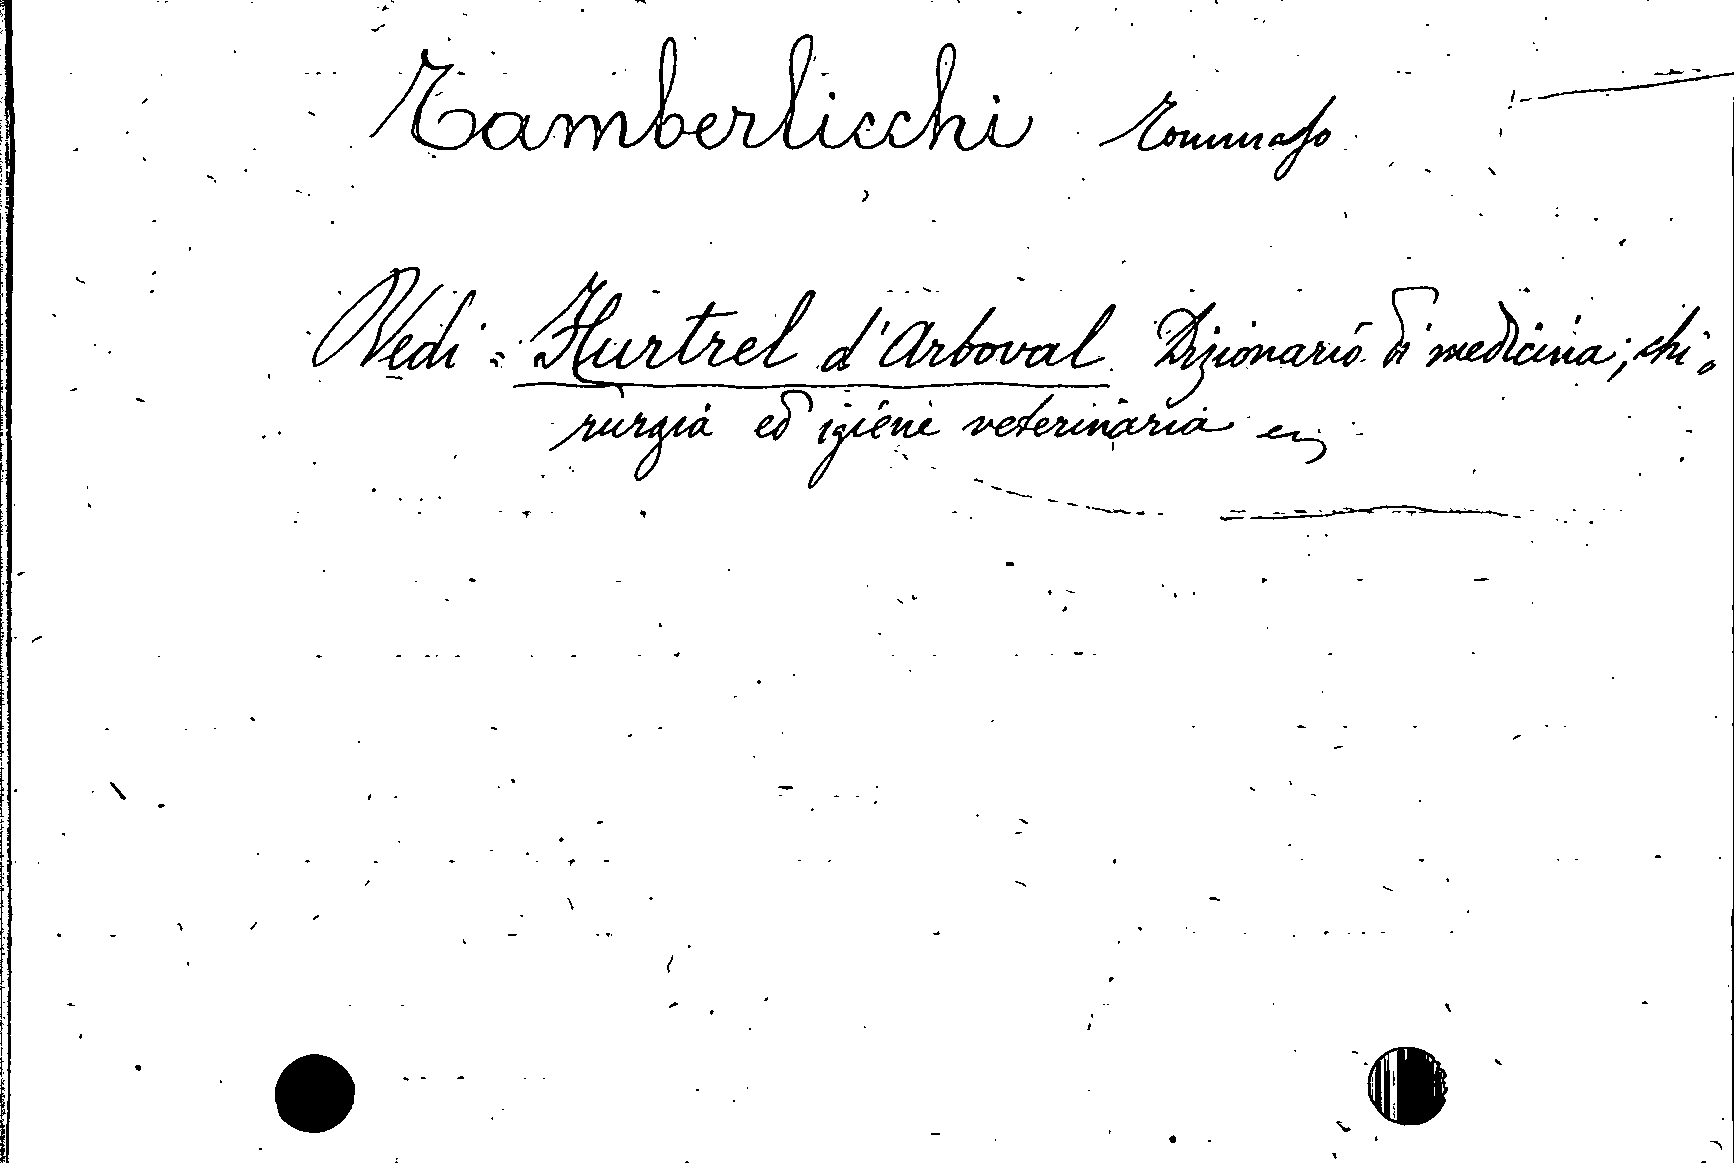 Tamberlicchi Tommaso
Vedi = Hurtrel d'Arboval Dizionario di medicina; chi=
rurgia ed igiene veterinaria